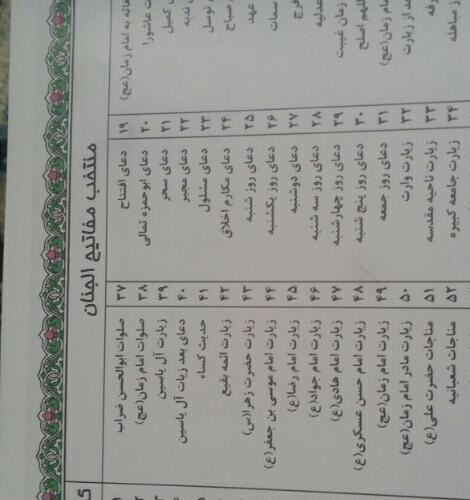 منتخب مفاتیح الجنان
به امام زمان(عج) ۱۹ دعای افتتاح ۳۷ صلوات ابوالحسن ضراب
عاشورا ۲۰ دعای ابوحمزه ثمالی ۳۸ صلوات امام زمان(عج)
کمیل ۲۱ دعای سحر ۳۹ زیارت آل یاسین
ندبه ۲۲ دعای مجیر ۴۰ دعای بعد زیارت آل یاسین
توسل ۲۳ دعای مشلول ۴۱ حدیث کساء
صباح ۲۴ دعای مکارم اخلاق ۴۲ زیارت ائمه بقیع
عهد ۲۵ دعای روز شنبه ۴۳ زیارت حضرت زهرا(س)
سمات ۲۶ دعای روز یکشنبه ۴۴ زیارت امام موسی بن جعفر(ع)
فرج ۲۷ دعای دوشنبه ۴۵ زیارت امام رضا(ع)
عدلیه ۲۸ دعای روز سه شنبه ۴۶ زیارت امام جواد(ع)
زمان غیبت ۲۹ دعای روز چهارشنبه ۴۷ زیارت امام هادی(ع)
اللهم اصلح ۳۰ دعای روز پنج شنبه ۴۸ زیارت امام حسن عسکری(ع)
زمان(عج) ۳۱ دعای روز جمعه ۴۹ زیارت امام زمان(عج)
از زیارت ۳۲ زیارت وارث ۵۰ زیارت مادر امام زمان(عج)
۳۳ زیارت ناحیه مقدسه ۵۱ مناجات حضرت علی(ع)
مباهله ۳۴ زیارت جامعه کبیره ۵۲ مناجات شعبانیه